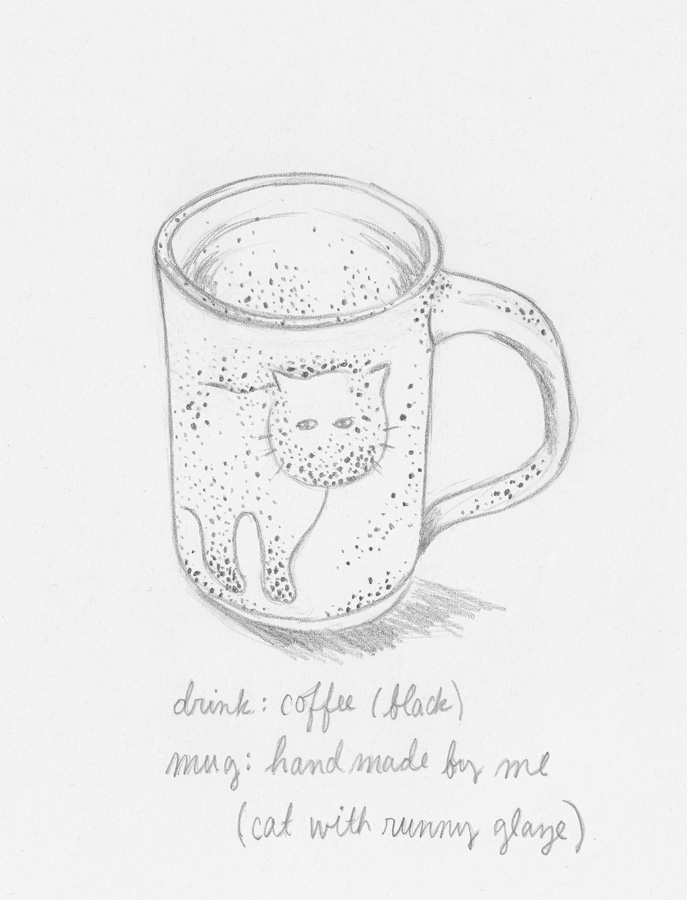 drink: coffee (black)
mug: handmade by me
(cat with runny glaze)